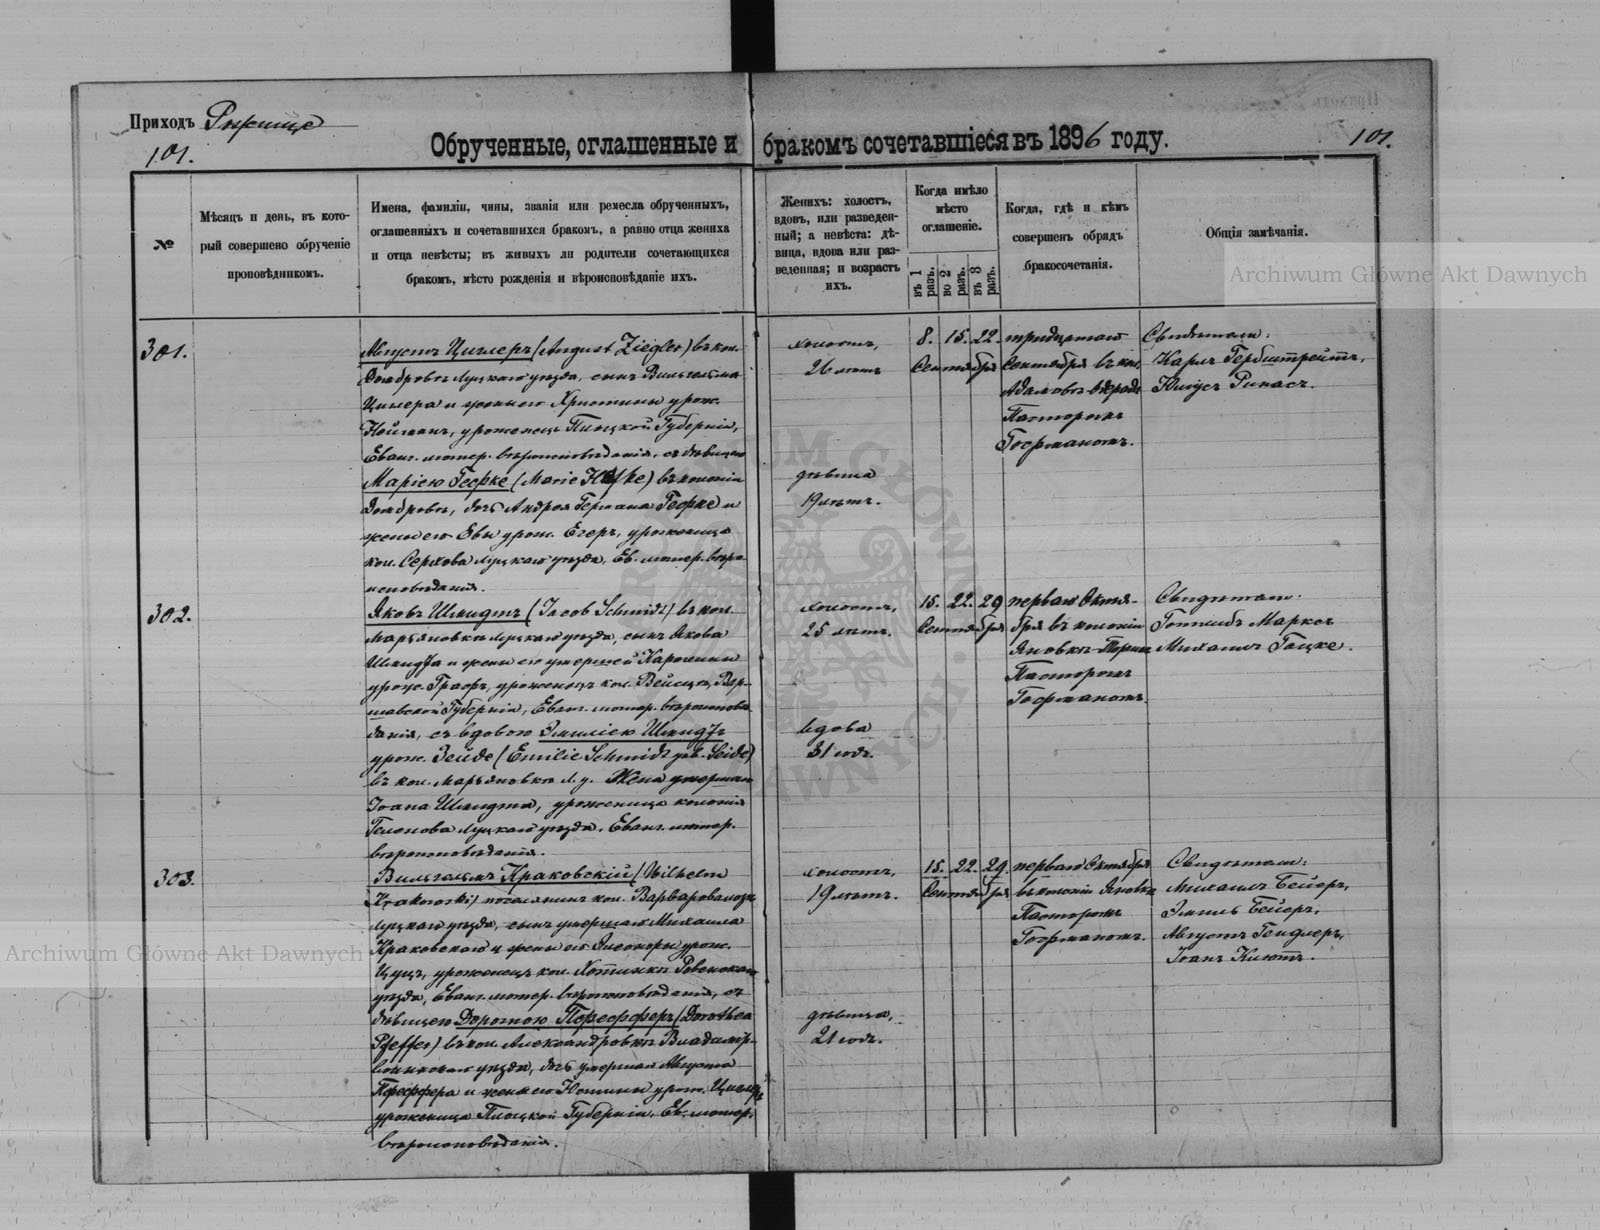 Приходъ Рожище
101.
Обрученные, оглашенные и бракомъ сочетавшіеся въ 1896 году.
101.
№
Мѣсяцъ и день, въ кото-
рый совершено обрученіе
проповѣдникомъ.
Имена, фамиліи, чины, званія или ремесла обрученныхъ,
оглашенныхъ и сочетавшихся бракомъ, а равно отца жениха
и отца невѣсты; въ живыхъ ли родители сочетающихся
бракомъ, мѣсто рожденія и вѣроисповѣданіе ихъ.
Женихъ: холостъ,
вдовъ, или разведен-
ный; а невѣста: дѣ-
вица, вдова или раз-
веденная; и возрастъ
ихъ.
Когда имѣло
мѣсто
оглашеніе.
въ 1 разъ.
во 2 разъ.
въ 3 разъ.
Когда, гдѣ и кѣмъ
совершенъ обрядъ
бракосочетанія.
Общія замѣчанія.
Archiwum Główne Akt Dawnych
301.
Августъ Циглеръ (August Ziegler) въ кол.
Домбровкѣ Луцкаго уѣзда, сынъ Вильгельма
Циглера и жены его Христины урож.
Нейманъ, уроженецъ Плоцкой Губерніи,
Еванг. лютер. вѣроисповѣданія, съ дѣвицею
Маріею Гефке (Marie Höfke) въ колоніи
Домбровкѣ, дочь Андрея Германа Гефке и
жены его Евы урож. Егеръ, уроженица
кол. Серхова Луцкаго уѣзда, Ев. лютер. вѣро-
исповѣданія.
холостъ,
26 лѣтъ
дѣвица
19 лѣтъ.
8. 15. 22.
Сентября
тридцатаго
Сентября въ кол.
Адамовкѣ
Пасторомъ
Госрманомъ.
Свидѣтели:
Карлъ Гербштрейтъ,
Юлiусъ Ринасъ.
302.
Яковъ Шмидтъ (Jacob Schmidt) въ кол.
Марьяновкѣ Луцкаго уѣзда, сынъ Якова
Шмидта и жены его умершей Каролины
урож. Графъ, уроженецъ кол. Вар-
шавской Губерніи, Еванг. лютер. вѣроисповѣ-
данія, съ вдовою Эмиліею Шмидтъ
урож. Зейде (Emilie Schmidt geb. Seide)
въ кол. Марьяновкѣ Л. у. Жена умершаго
Іоана Шмидта, уроженица колоніи
Луцкаго уѣзда. Еванг. лютер.
вѣроисповѣданія.
холостъ,
25 лѣтъ.
вдова
31 годъ.
15. 22. 29
Сентября
перваго Октя-
бря въ колоніи
Яновкѣ
Пасторомъ
Госрманомъ.
Свидѣтели:
Готлибъ Марксъ
Михаилъ Гацке.
303.
Вильгельмъ Краковскій (Wilhelm
Krakowski) поселянинъ кол.
Луцкаго уѣзда, сынъ умершаго Михаила
Краковскаго и жены его Элеоноры урож.
уроженецъ кол. Хотинки Ровенскаго
уѣзда, Еванг. лютер. вѣроисповѣданія, съ
дѣвицею Доротею Пфефферъ (Dorothea
Pfeffer) въ кол. Александровкѣ Владимір-
волынскаго уѣзда, дочь умершаго Августа
Пфеффера и жены его Юстины урож. Циглеръ
уроженица Плоцкой Губерніи. Ев. лютер.
вѣроисповѣданія.
холостъ,
19 лѣтъ.
дѣвица,
21 годъ.
15. 22. 29.
Сентября
перваго Октября
въ колоніи Яновкѣ
Пасторомъ
Госрманомъ.
Свидѣтели:
Михаилъ Бейеръ,
Эмиль Бейеръ,
Августъ Гендлеръ,
Іоанъ Клютъ.
Archiwum Główne Akt Dawnych